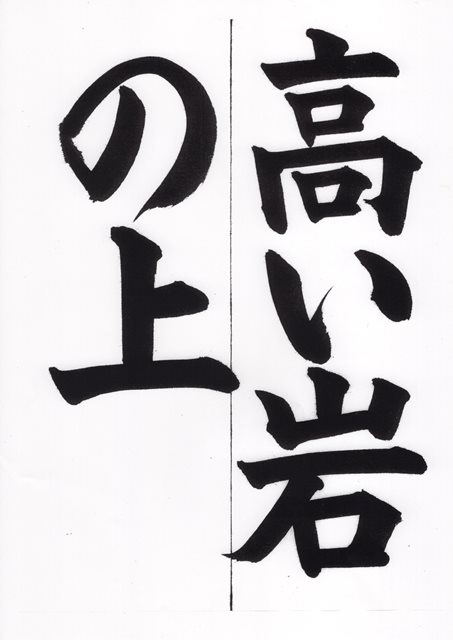 高い岩
の上